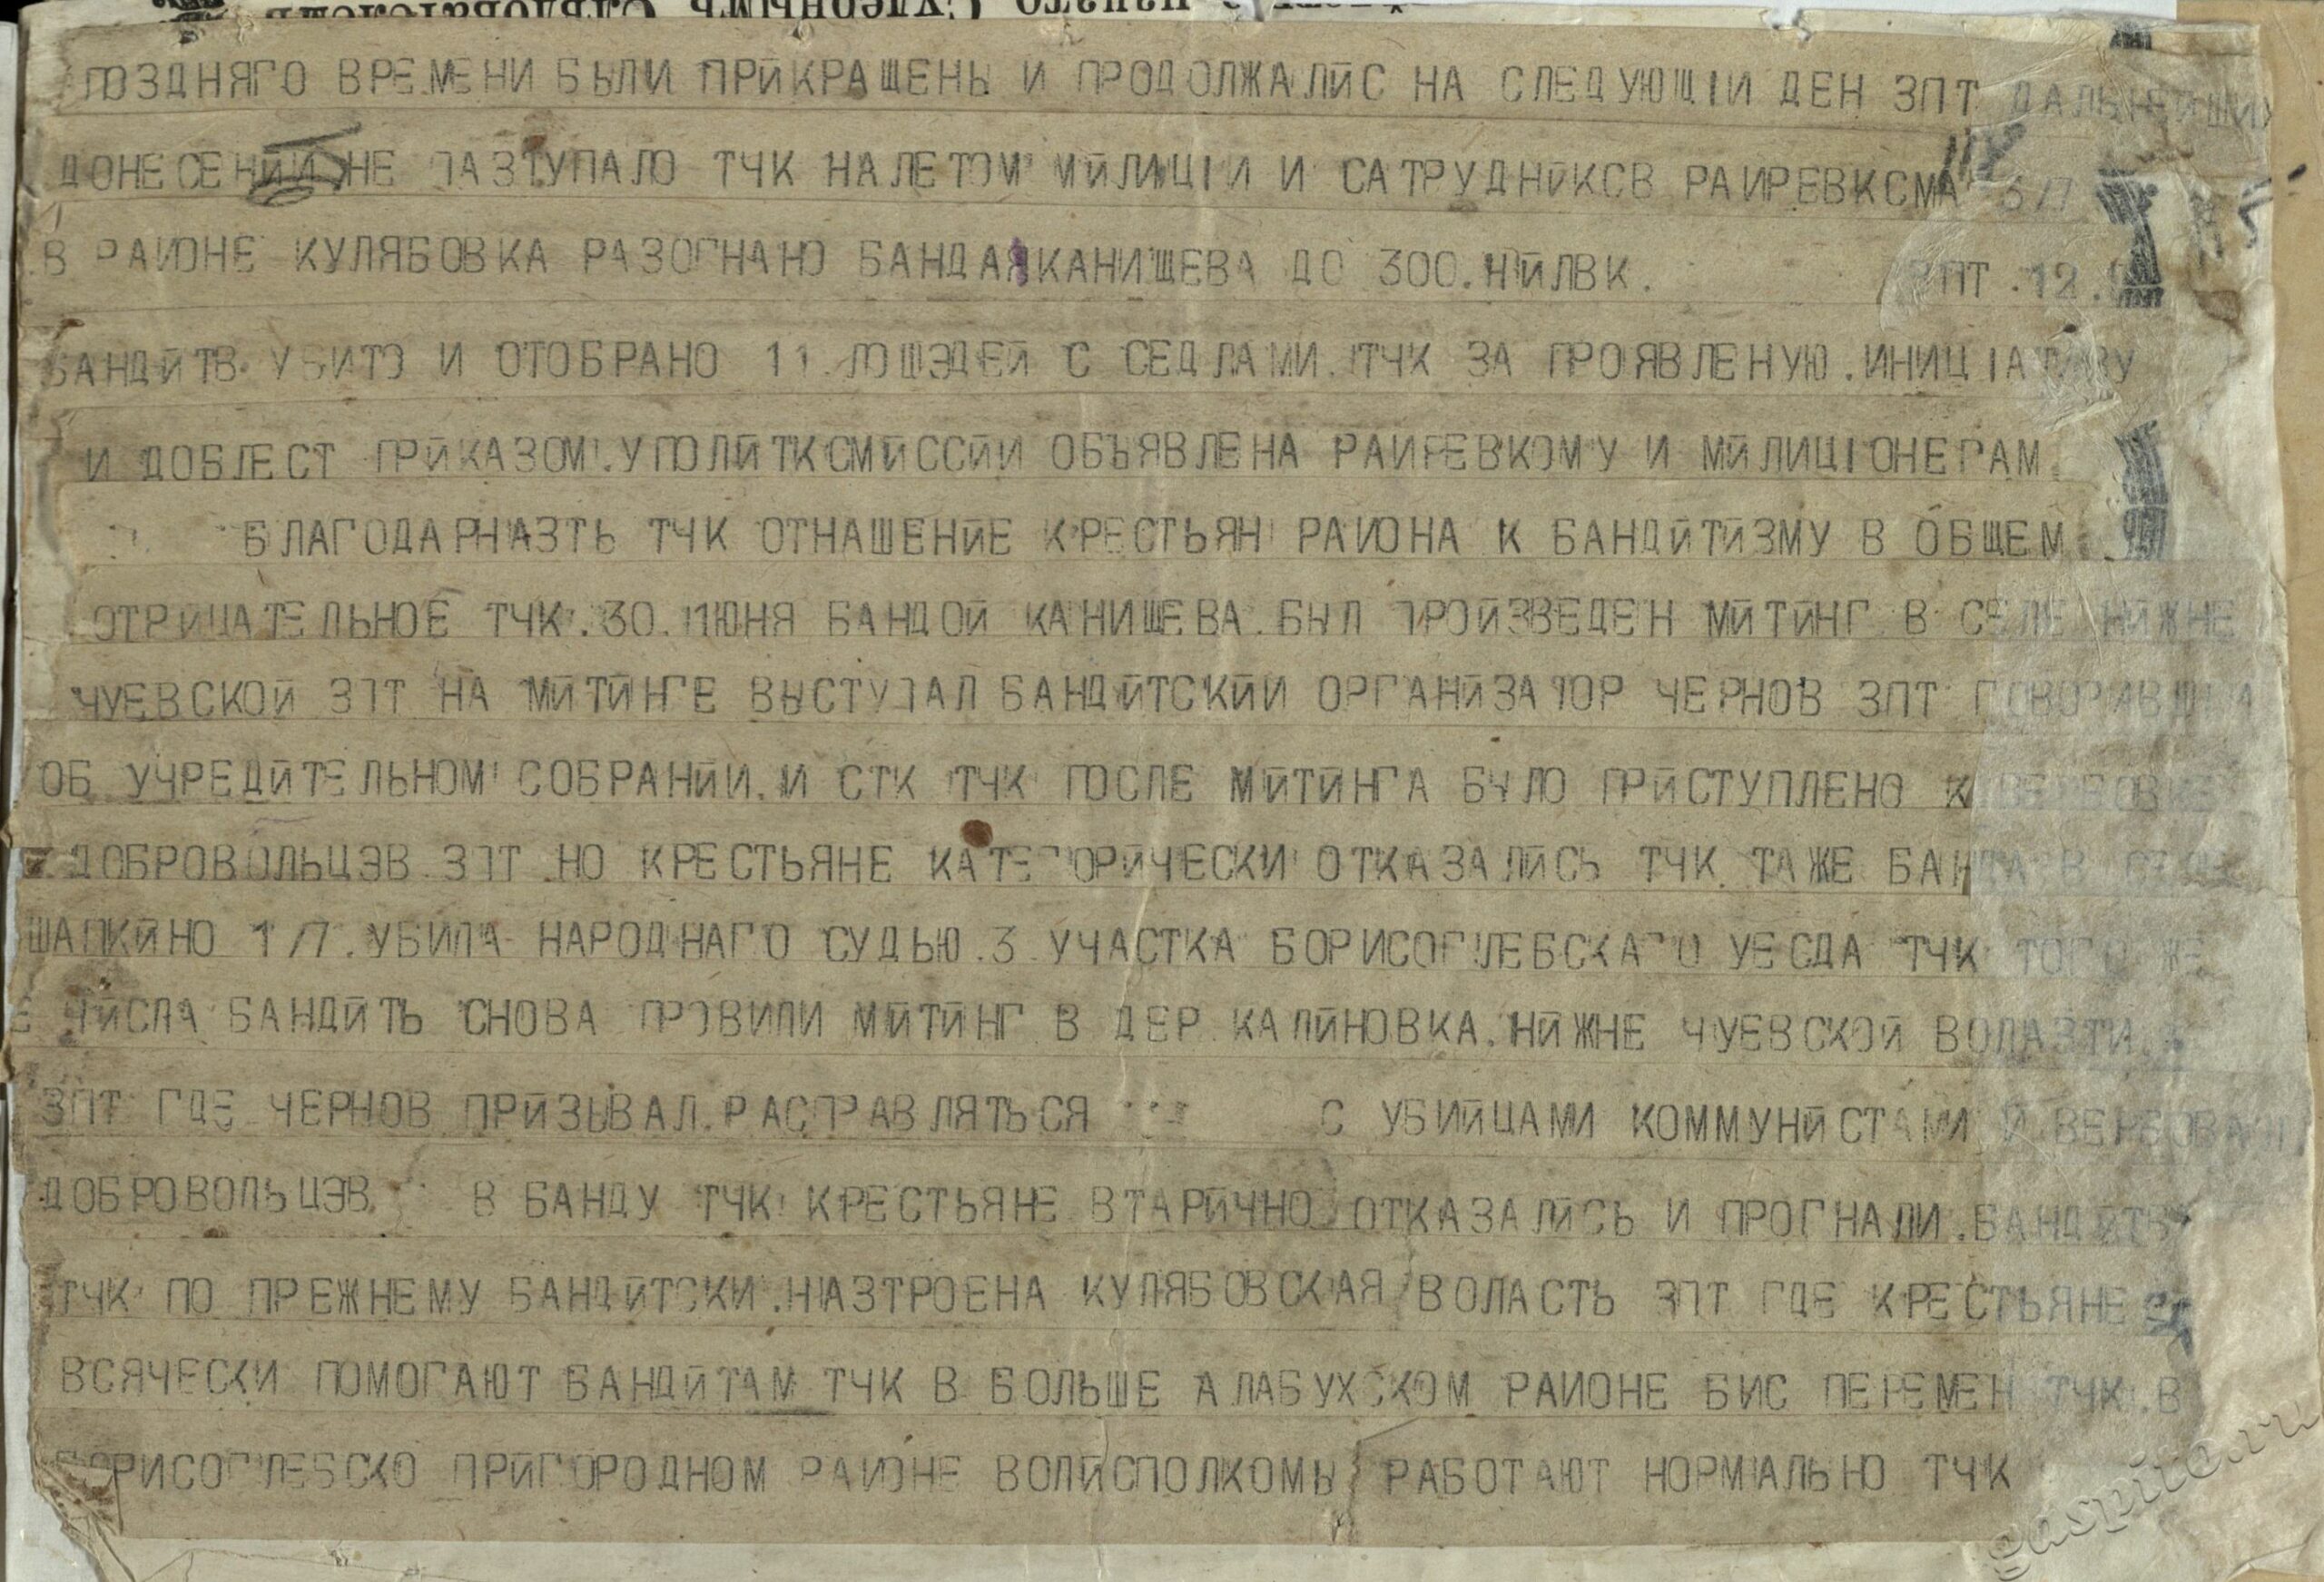 ПОЗДНЯГО ВРЕМЕНИ БЫЛИ ПРЙКРАЩЕНЫ И ПРОДОЛЖАЛЙС НА СЛЕДУЮЩIИ ДЕН ЗПТ ДАЛЬНЕЙШИХ
ДОНЕСЕНЙИ НЕ ПАЗТУПАЛО ТЧК НАЛЕТОМ МЙЛИЦIИ И САТРУДНЙКОВ РАИРЕВКОМА 3/7
В РАИОНЕ КУЛЯБОВКА РАЗОГНАНО БАНДА КАНИЩЕВА ДО 300. ЗПТ .12.
БАНДЙТВ УБИТО И ОТОБРАНО 11 ЛОШЭДЕЙ С СЕДЛАМИ. ТЧК ЗА ПРОЯВЛЕНУЮ .ИНИЦIАТИВУ
И ДОБЛЕСТ ПРЙКАЗОМ.УПОЛЙТКОМЙССЙИ ОБЪЯВЛЕНА РАИРЕВКОМУ И МЙЛИЦIОНЕРАМ
БЛАГОДАРНАЗТЬ ТЧК ОТНАШЕНЙЕ КРЕСТЬЯН РАИОНА К БАНДЙТЙЗМУ В ОБЩЕМ
ОТРИЦАТЕЛЬНОЕ ТЧК.30.ИЮНЯ БАНДОЙ КАНИЩЕВА.БЫЛ ПРОЙЗВЕДЕН МЙТЙНГ В СЕЛЕ НЙЖНЕ
ЧУЕВСКОЙ ЗПТ НА МЙТЙНГЕ ВЫСТУПАЛ БАНДЙТСКЙИ ОРГАНЙЗАТОР ЧЕРНОВ ЗПТ ГОВОРИВШИЙ
ОБ УЧРЕДЙТЕЛЬНОМ СОБРАНЙИ.И СТК ТЧК ПОСЛЕ МЙТЙНГА БЫЛО ПРЙСТУПЛЕНО К ВЕРБОВКЕ
ДОБРОВОЛЬЦЭВ ЗПТ НО КРЕСТЬЯНЕ КАТЕГОРЙЧЕСКИ ОТКАЗАЛЙСЬ ТЧК ТАЖЕ БАНДА В СЕЛЕ
ШАПКЙНО 1/7.УБИЛА НАРОДНАГО СУДЬЮ.3 УЧАСТКА БОРИСОГЛЕБСКАГО УЕСДА ТЧК ТОГО ЖЕ
ЧЙСЛА БАНДЙТЬ СНОВА ПРОВИЛИ МЙТЙНГ В ДЕР КАЛЙНОВКА.НЙЖНЕ ЧУЕВСКОЙ ВОЛАЗТИ
ЗПТ ГДЕ ЧЕРНОВ ПРЙЗЫВАЛ.РАСПРАВЛЯТЬСЯ С УБИЙЦАМИ КОММУНЙСТАМИ И ВЕРБОВАЛ
ДОБРОВОЛЬЦЭВ В БАНДУ ТЧК КРЕСТЬЯНЕ ВТАРЙЧНО ОТКАЗАЛЙСЬ И ПРОГНАЛИ.БАНДЙТЬ
ТЧК ПО ПРЕЖНЕМУ БАНДЙТСКИ.НАЗТРОЕНА КУЛЯБОВСКАЯ ВОЛАСТЬ ЗПТ ГДЕ КРЕСТЬЯНЕ
ВСЯЧЕСКИ ПОМОГАЮТ БАНДЙТАМ ТЧК В БОЛЬШЕ АЛАБУХСКОМ РАИОНЕ БИС ПЕРЕМЕН ТЧК.В
БОРИСОГЛЕБСКО ПРЙГОРОДНОМ РАИОНЕ ВОЛЙСПОЛКОМЫ РАБОТАЮТ НОРМАЛЬНО ТЧК
gaspito.ru